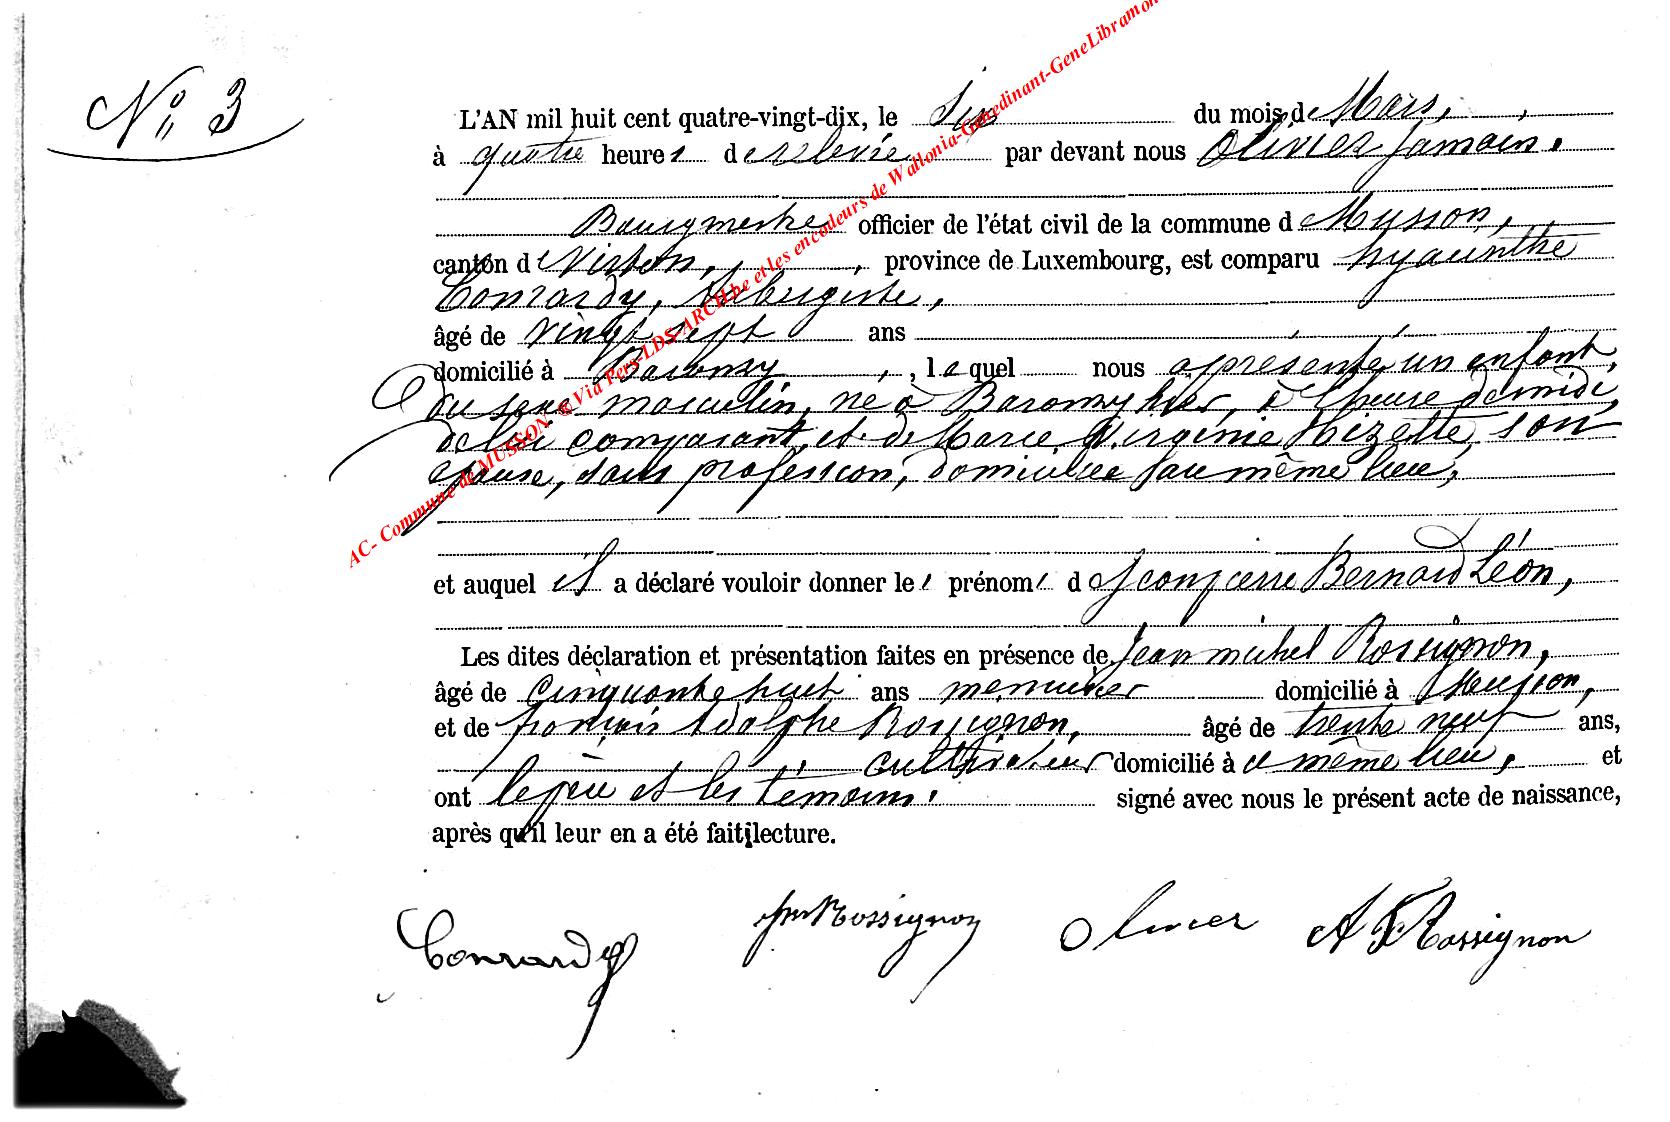 N° 3
L'AN mil huit cent quatre-vingt-dix, le six du mois d Mars,
à quatre heures de relevée par devant nous Olivier Jamain.
Bourgmestre officier de l'état civil de la commune d Musson,
canton d Virton, province de Luxembourg, est comparu hyacinthe
Conrardy, Aubergiste,
âgé de vingt sept ans
domicilié à Baranzy, lequel nous a présenté un enfant,
du sexe masculin, né à Baranzy hier, à l'heure de midi,
de lui comparant, et de Marie Virginie Hizette, son
épouse, sans profession, domiciliée au même lieu,
et auquel il a déclaré vouloir donner les prénoms d Jean pierre Bernard Léon,
Les dites déclaration et présentation faites en présence de Jean michel Rossignon,
âgé de cinquante huit ans menuisier domicilié à Musson,
et de françois Adolphe Rossignon, âgé de trente neuf ans,
cultivateur domicilié à ce même lieu, et
ont le père et les témoins. signé avec nous le présent acte de naissance,
après qu'il leur en a été fait lecture.
Conrardy Rossignon Olivier A F Rossignon
AC- Commune de MUSSON © Via Pers-LDS-ARCH.be et les encodeurs de Wallonia-Genedinant-GeneLibramon